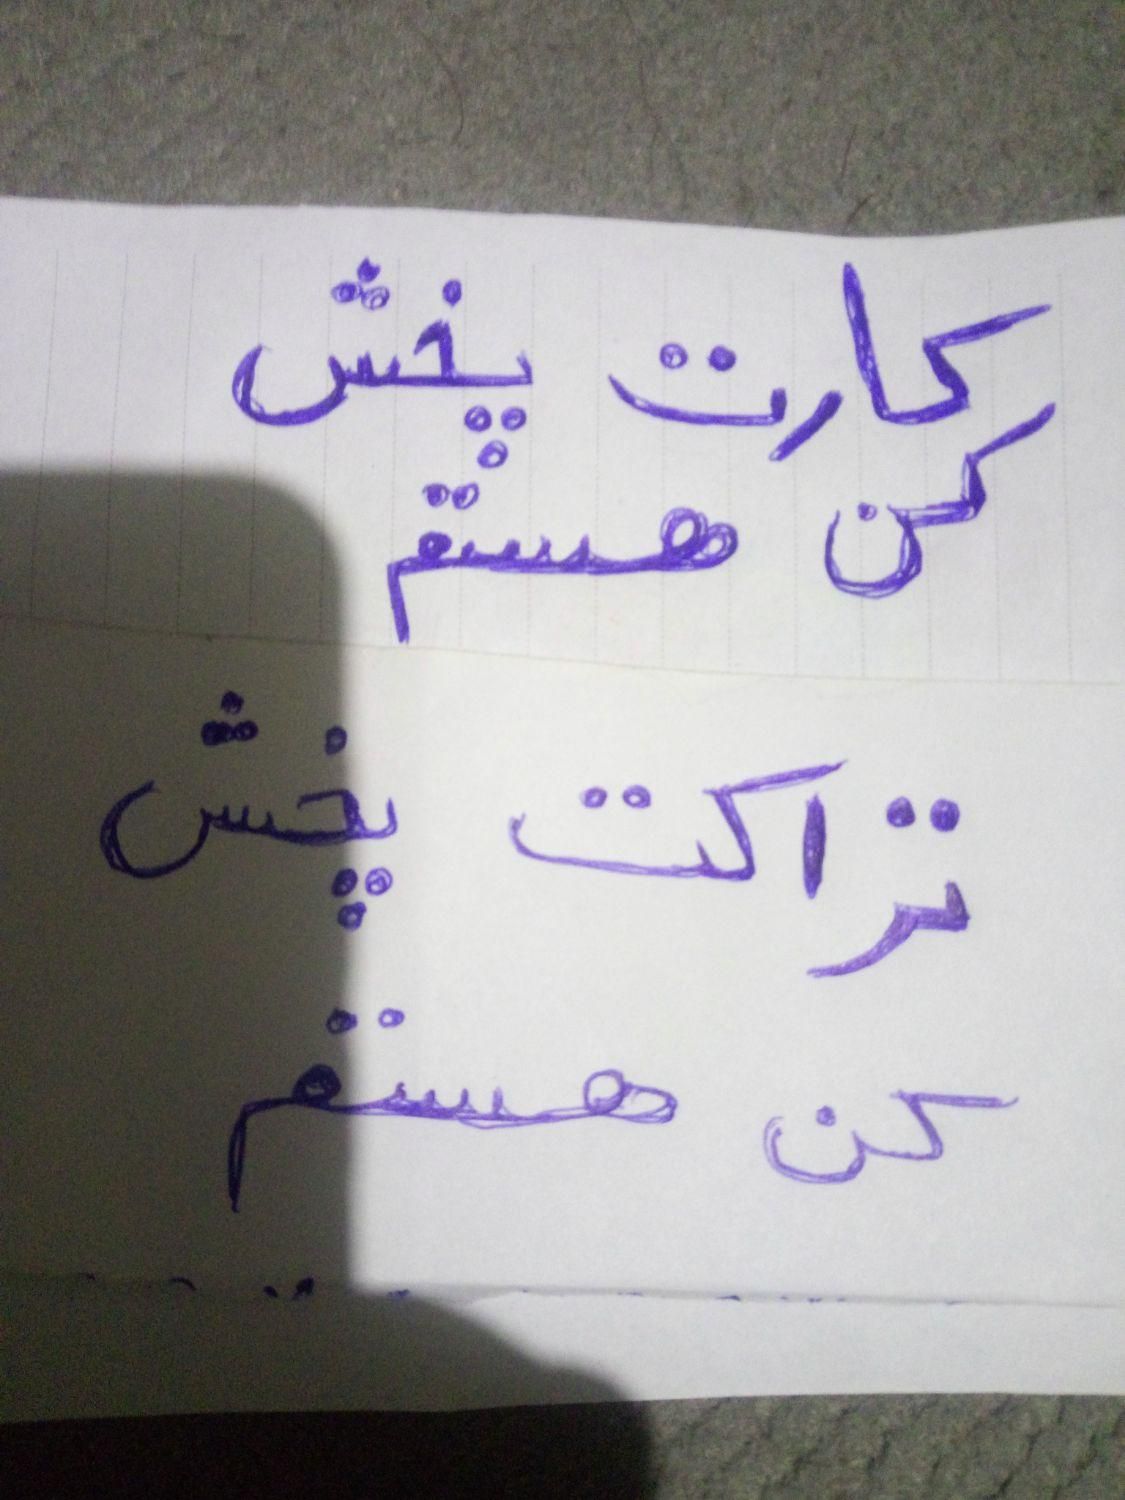 کارت پخش
کن هستم
تراکت پخش
کن هستم